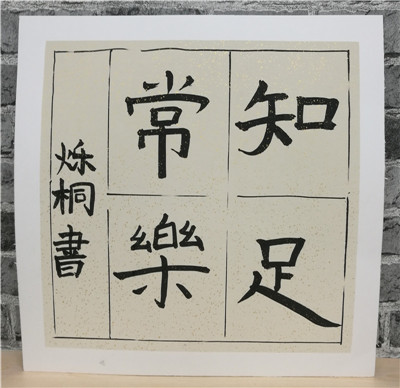 知足
常樂
烁桐書